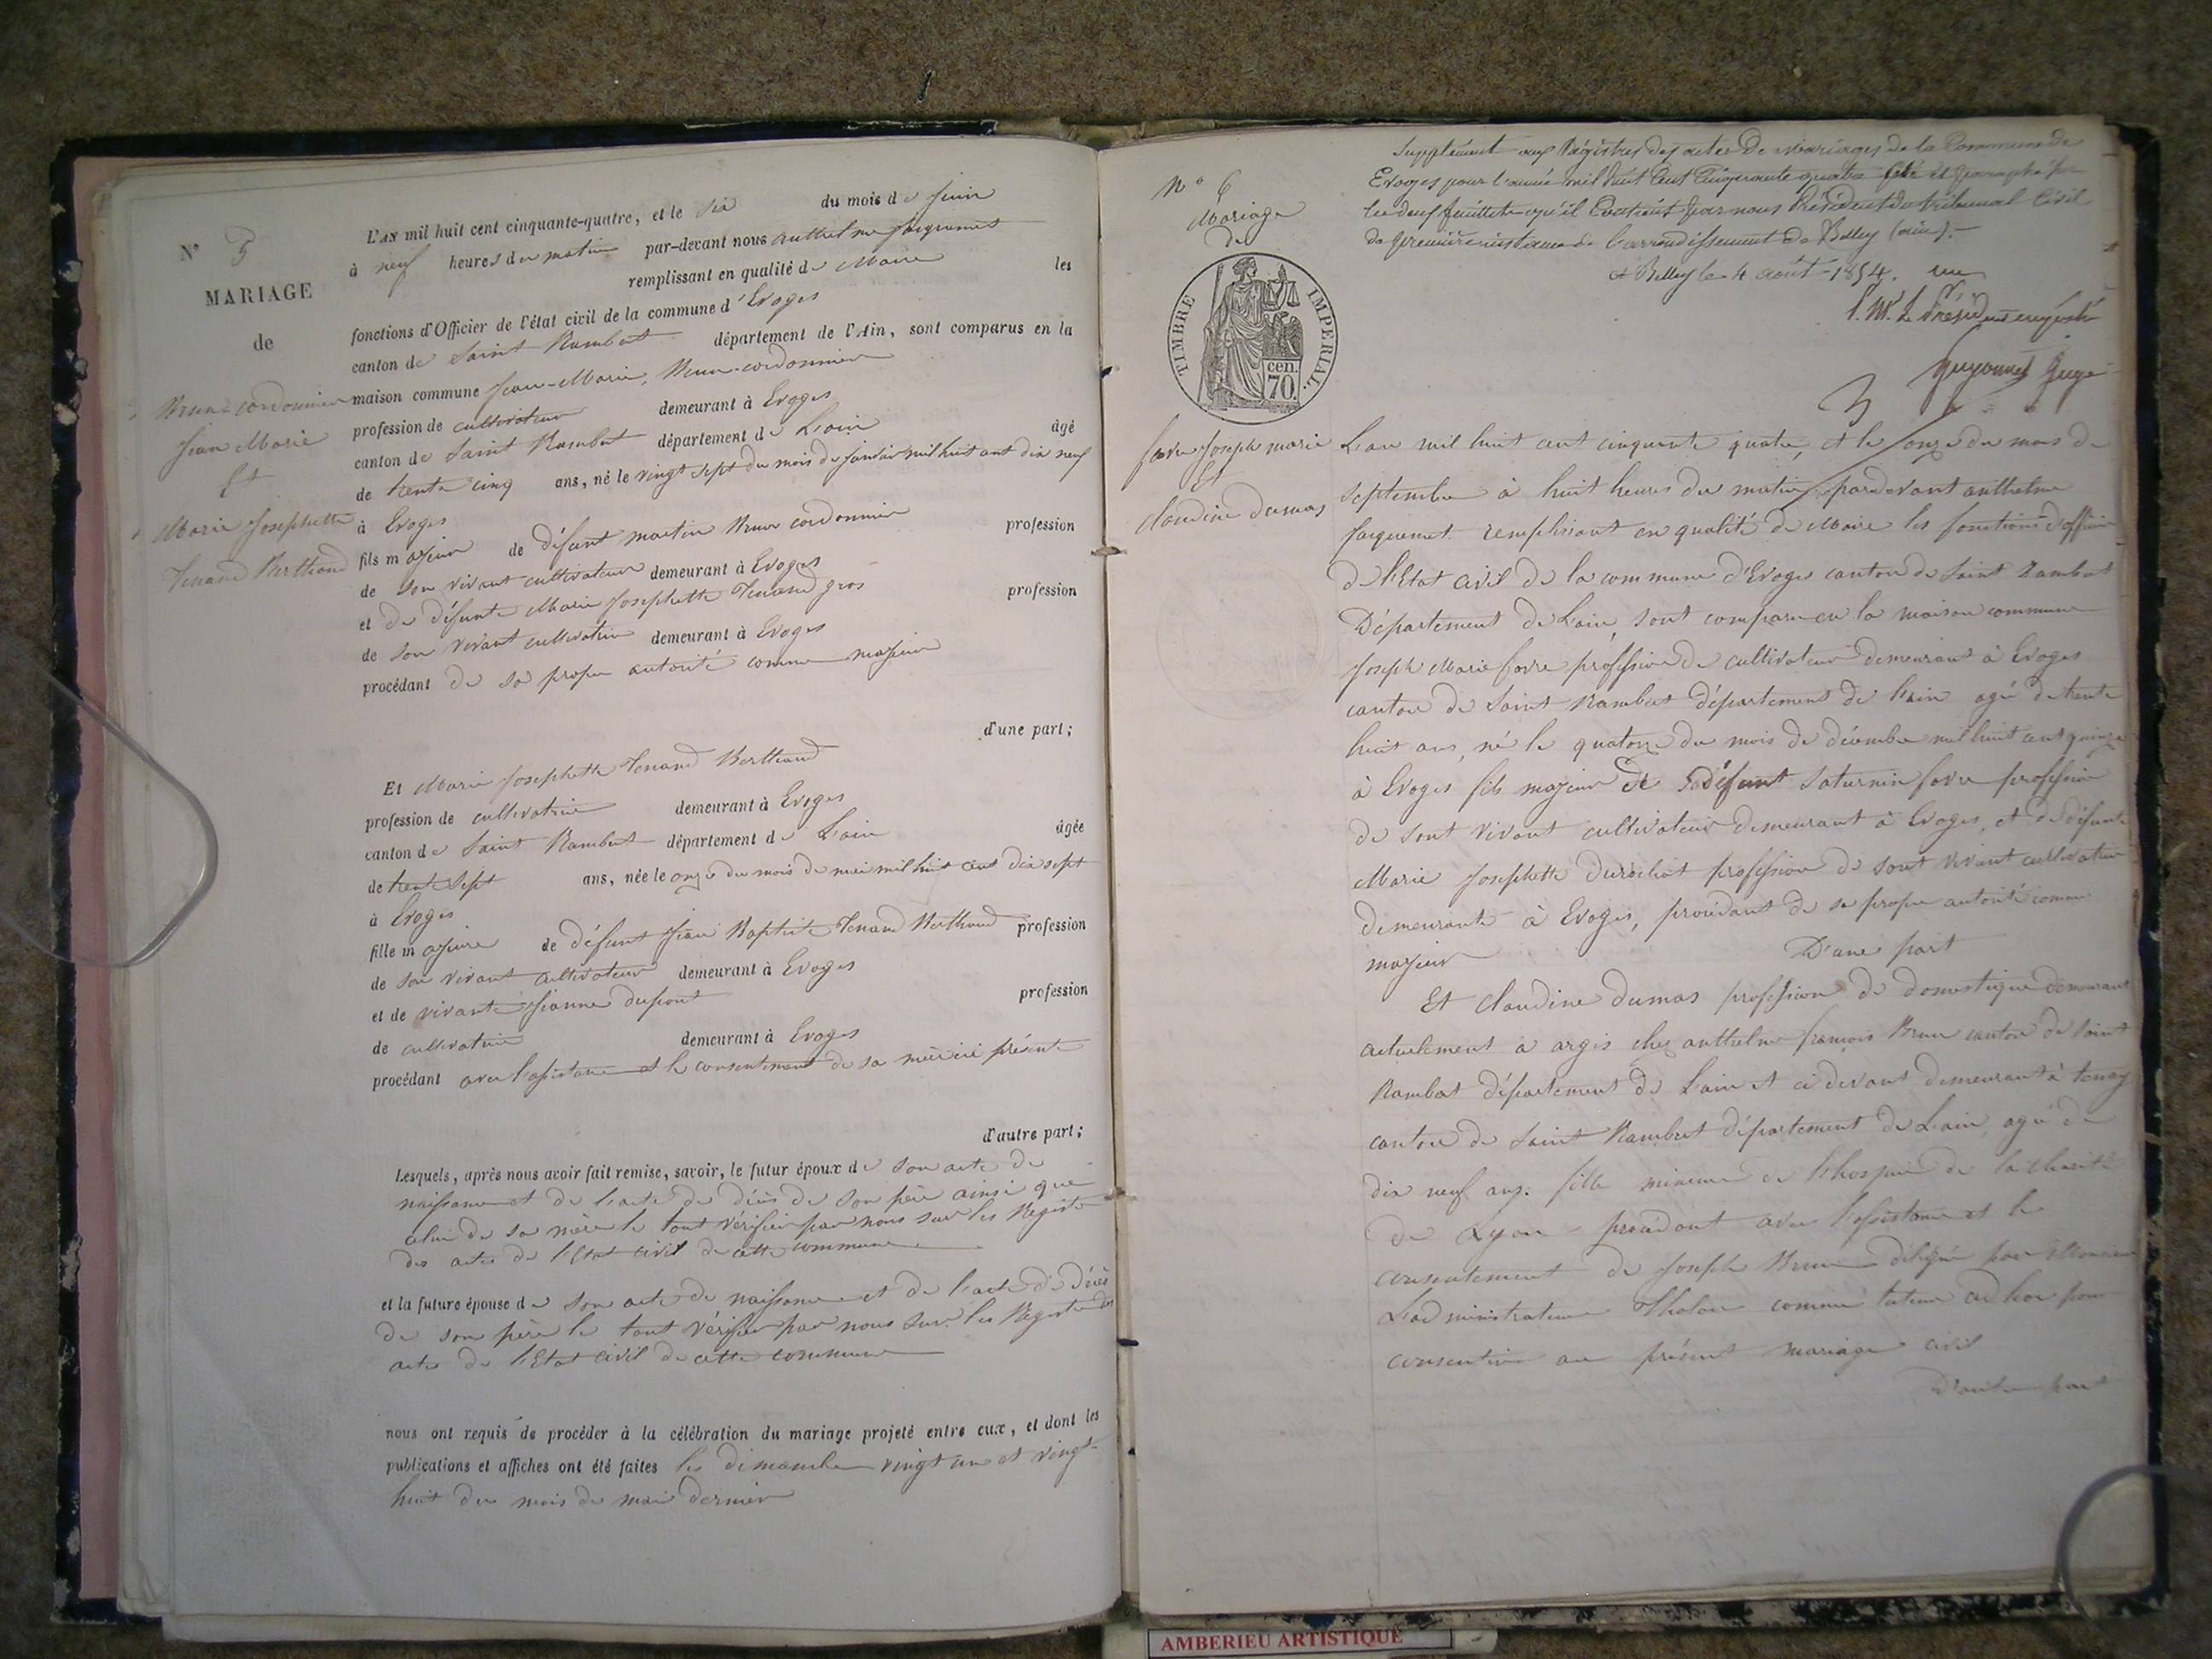 N° 5
MARIAGE
de
Brun-cordonnier
Jean Marie
Et
Marie Josephette
Tenand Berthand
L'AN mil huit cent cinquante-quatre, et le six du mois de juin
à neuf heures du matin par-devant nous anthelme
remplissant en qualité de Maire les
fonctions d'Officier de l'état civil de la commune d'Evoges
canton de Saint Rambert département de l'Ain, sont comparus en la
maison commune Jean-Marie, Brun-cordonnier
profession de cultivateur demeurant à Evoges
canton de Saint Rambert département de L'ain âgé
de trente cinq ans, né le vingt sept du mois de janvier mil huit cent dix neuf
à Evoges
fils majeur de défunt martin Brun cordonnier profession
de son vivant cultivateur demeurant à Evoges
et de défunte Marie Josephette Tenand gros profession
de son vivant cultivatrice demeurant à Evoges
procédant de sa propre autorité comme majeur
d'une part;
Et Marie Josephette Tenand Berthand
profession de cultivatrice demeurant à Evoges
canton de Saint Rambert département de L'ain âgée
de trente sept ans, née le onze du mois de mai mil huit cent dix sept
à Evoges
fille majeure de défunt Jean Baptiste Tenand Berthand profession
de son vivant cultivateur demeurant à Evoges
et de vivante Jeanne dupont profession
de cultivatrice demeurant à Evoges
procédant avec l'assistance et le consentement de sa mère ici présente
d'autre part;
Lesquels, après nous avoir fait remise, savoir, le futur époux de son acte de
naissance et de l'acte de décès de son père ainsi que
celui de sa mère le tout vérifier par nous sur les Registre
des actes de l'Etat civil de cette commune
et la future épouse de son acte de naissance et de l'acte de décès
de son père le tout vérifier par nous sur les Registre des
actes de l'Etat civil de cette commune
nous ont requis de procéder à la célébration du mariage projeté entre eux, et dont les
publications et affiches ont été faites les dimanche vingt un et vingt-
huit du mois de mai dernier
N° 6
Mariage
de
TIMBRE IMPERIAL.
cen.
70.
favre Joseph marie
Et
claudine dumas
Supplément aux Régistres des actes de mariages de la Commune de
Evoges pour l'année mil huit Cent Cinquante quatre Côté et paraphé par
les deux feuillets qu'il Contient par nous Président du tribunal Civil
de première instance de l'arrondissement de Belley (ain).
à Belley le 4 août 1854.
P. Mr. Le Président empêché
Guyonnet Juge
L'an mil huit cent cinquante quatre, et le onze du mois de
septembre à huit heures du matin, pardevant anthelme
remplissant en qualité de Maire les fonctions d'officier
de l'Etat civil de la commune d'Evoges canton de Saint Rambert
Département de L'ain, sont comparu en la maison commune
Joseph Marie favre profession de cultivateur demeurant à Evoges
canton de Saint Rambert département de L'ain agé de trente
huit ans, né le quatorze du mois de décembre mil huit cent quinze
à Evoges fils majeur de défunt Saturnin favre profession
de sont vivant cultivateur demeurant à Evoges, et de défunte
Marie Josephette Durochat profession de sont vivant cultivatrice
demeurante à Evoges, procédant de sa propre autorité comme
majeur D'une part
Et claudine dumas profession de domestique demeurant
actuelement à argis chez anthelme françois Brun canton de Saint
Rambert département de L'ain et ci devant demeurant à tenay
canton de Saint Rambert département de L'ain, agée de
dix neuf ans. fille mineure de l'hospice de la charité
de Lyon procédant avec l'assistance et le
consentement de Joseph Brun délégué par Monsieur
L'administrateur comme tuteur ad hoc pour
consentire au présent mariage civil
D'autre part
AMBERIEU ARTISTIQUE